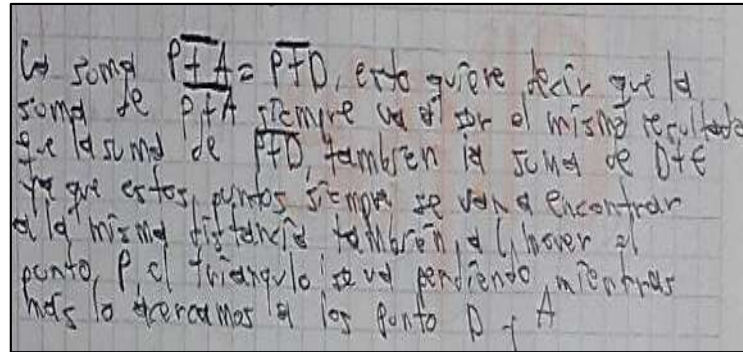 La suma P+A = P+D, esto quiere decir que la
suma de P+A siempre va a ser el mismo resultado
que la suma de P+D, tambien la suma de D+E
ya que estos puntos siempre se van a encontrar
a la misma distancia tambien, al mover el
punto, P, el triangulo se va perdiendo mientras
mas lo acercamos a los punto D y A